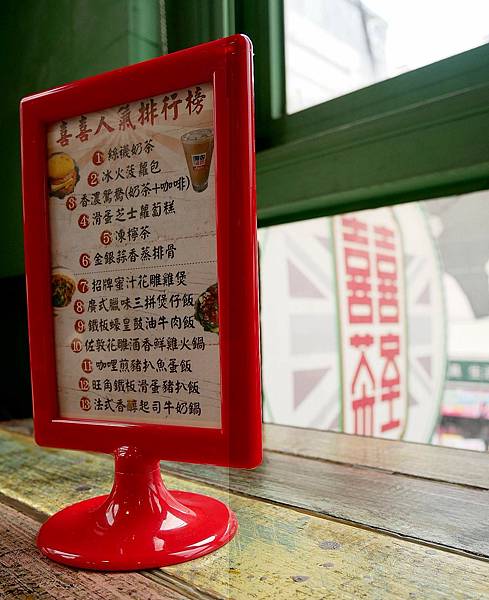 喜喜人氣排行榜
1 絲襪奶茶
2 冰火菠蘿包
3 香濃鴛鴦(奶茶+咖啡)
4 滑蛋芝士蘿蔔糕
5 凍檸茶
6 金銀蒜香蒸排骨
7 招牌蜜汁花雕雞煲
8 廣式臘味三拼煲仔飯
9 鐵板蠔皇鼓油牛肉飯
10 佐敦花雕酒香鮮雞火鍋
11 咖哩煎豬扒魚蛋飯
12 旺角鐵板滑蛋豬扒飯
13 法式香醇起司牛奶鍋
囍室
喜茶